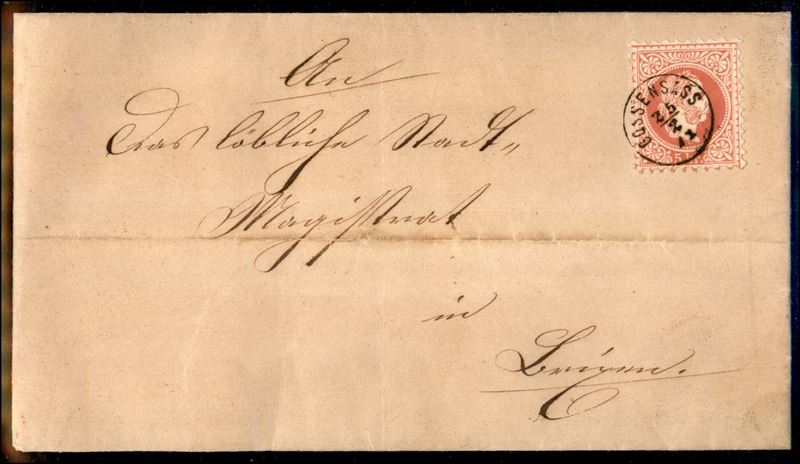 An
Das löbliche Stadt„
Magistrat
in
Brixen.
GOSSENSASS
5